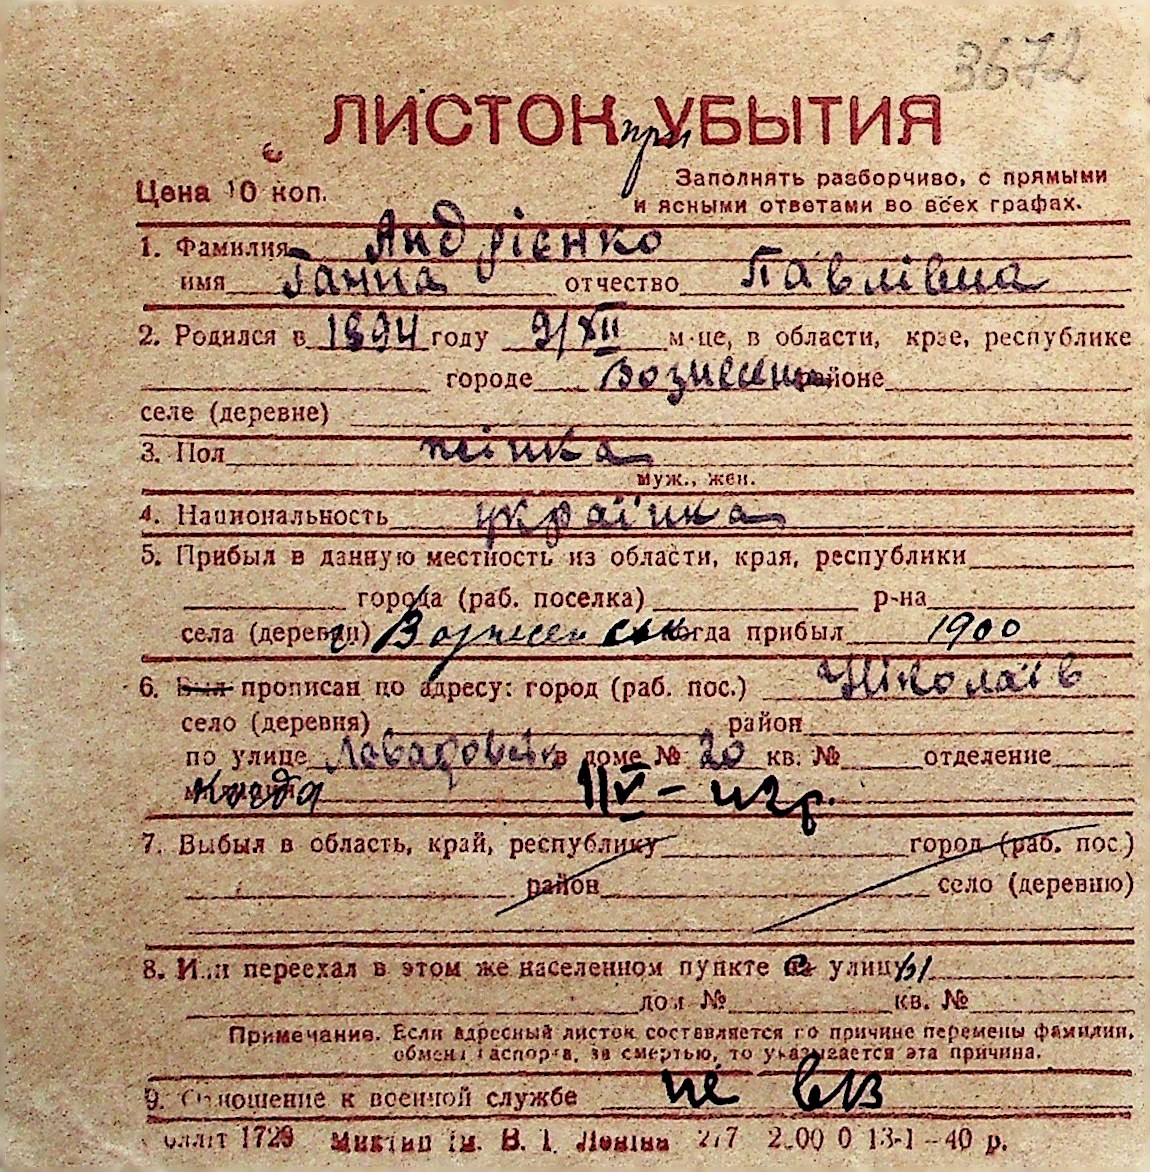 3672
ЛИСТОК при УБЫТИЯ
Цена 10 коп.
Заполнять разборчиво, с прямыми
и ясными ответами во всех графах.
1. Фамилия Андрієнко
имя Ганна отчество Павлівна
2. Родился в 1894 году 9/XII м-це, в области, крае, республике
городе районе
селе (деревне)
3. Пол жінка
муж., жен.
4. Национальность українка
5. Прибыл в данную местность из области, края, республики
города (раб. поселка) р-на
села (деревни) г Вознесенск когда прибыл 1900
6. Был прописан по адресу: город (раб. пос.) Ніколаїв
село (деревня) район
по улице в доме № 20 кв. № отделение
когда 1/V –
7. Выбыл в область, край, республику город (раб. пос.)
район село (деревню)
8. Или переехал в этом же населенном пункте с улицы
дом № кв. №
Примечание. Если адресный листок составляется по причине перемены фамилии,
обмена паспорта, за смертью, то указывается эта причина.
9. Отношение к военной службе не в/з
1729 ім. В. І. Леніна 13-1–40 р.